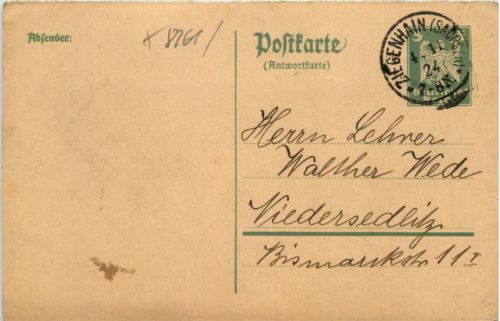 Absender:
* 8261/
Postkarte
(Antwortkarte)
ZIEGENHAIN (SACHSEN)
4 11
24
* 7-8N *
Herrn Lehrer
Walther Wede
Niedersedlitz
Bismarckstr 11 I